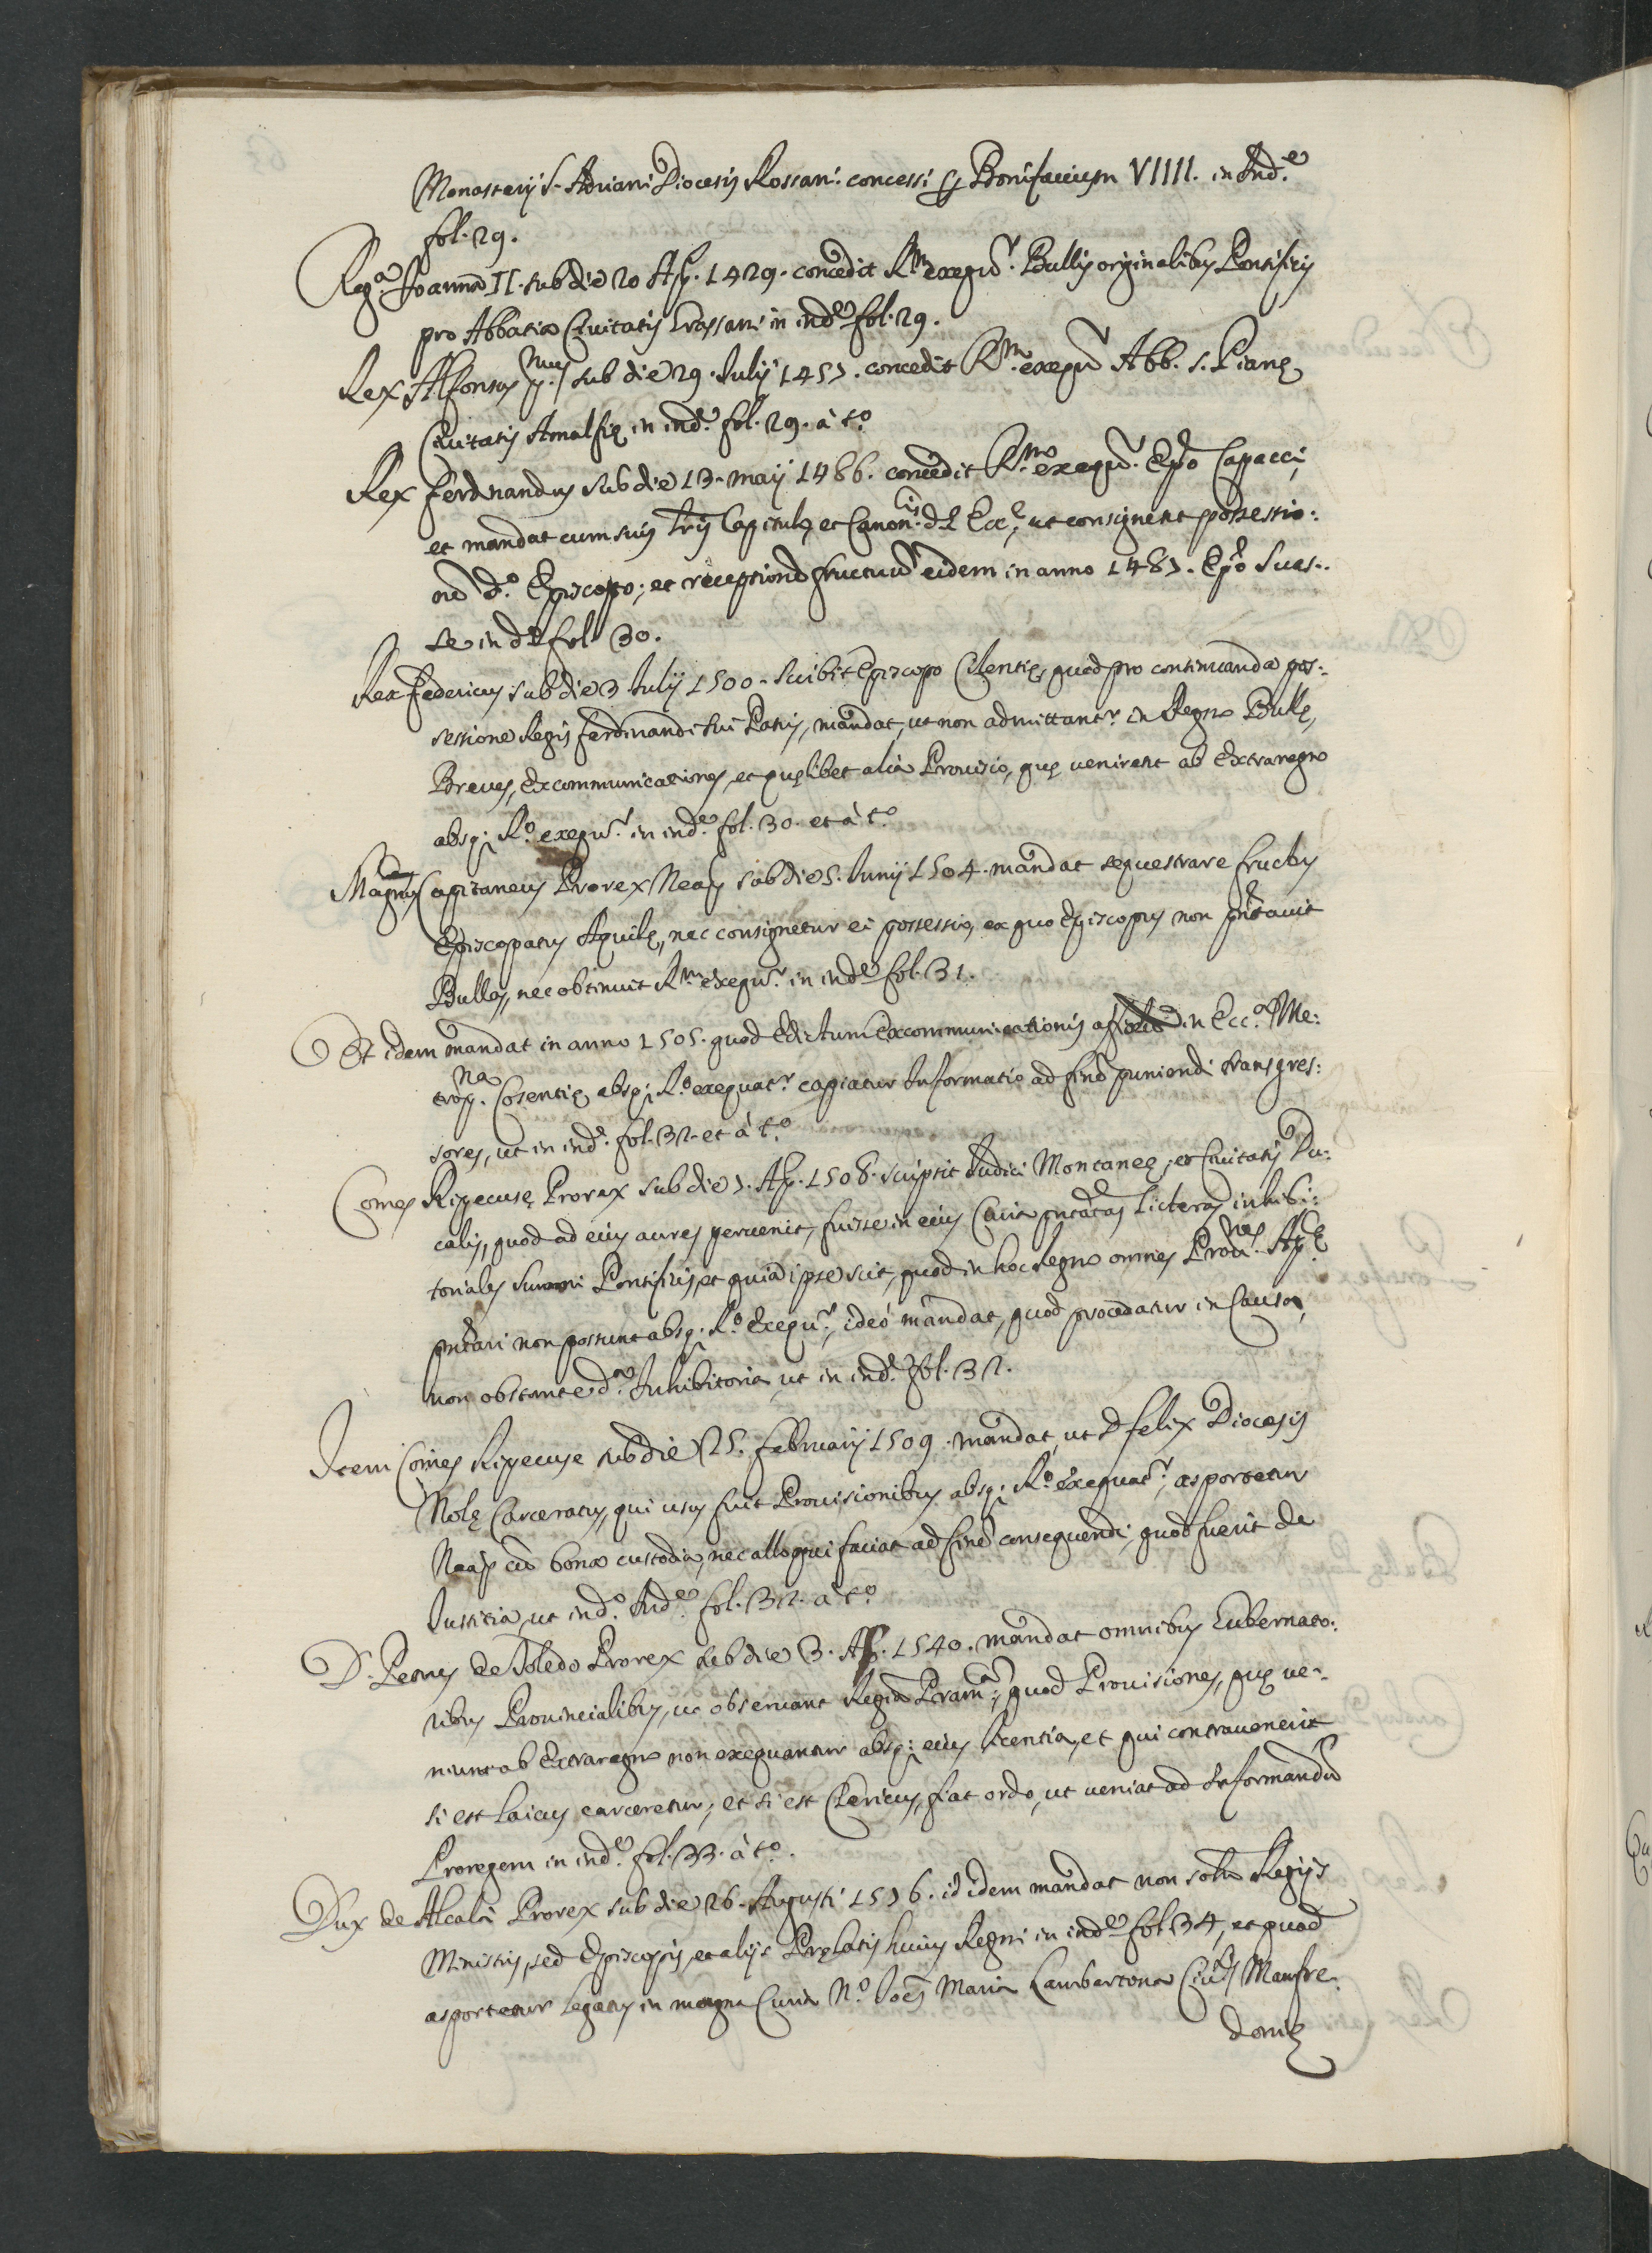 Monasterij S. Adriani Diocesis Rossani concessi p Bonifacium VIIII. in Ind.e
fol. 29.
Reg.a Joanna II. sub die 20 Ap. 1429. concedit R.m exequr. Bullis originalibus Pontificis
pro Abbatia Civitatis in ind.e fol. 29.
Rex Alfonsus pmus sub die 29. Julij 1457. concedit R.m exequr Abb. S.
Civitatis Amalfię in ind.e fol. 29. à t.o
Rex Ferdinandus sub die 13. maij 1486. concedit R.m exequr. Epo Capacci,
et mandat cum suis lris Capitulo, et Canon.cis d.e Ecc.e, ut consignent possessio:
nẽ d.o Episcopo; et receptionẽ fructuũ eidem in anno 1487. Epo Sues:
se in d.e fol. 30.
Rex Federicus sub die 3 Julij 1500. scribit Episcopo quod pro continuanda pos:
sessione Regis Ferdinandi sui Patris, mandat, ut non admittantr. in Regno Bullę,
Breves, Excommunicationes, et quęlibet alia Provisio, quę venirent ab Extraregno
absq; R.o exequr. in ind.e fol. 30. et à t.o
Magnus Capitaneus Prorex Neap sub die 5. Junij 1504. mandat sequestrare fructus
Episcopatus Aquilę, nec consignetur ei possessio, ex quo Episcopus non pñtavit
Bullas, nec obtinuit R.m exequr. in ind.e fol. 31.
Et idem mandat in anno 1505. quod Edictum Excommunicationis in Ecc.a Me:
trop.na Cosentię absq; R.o exequatr. capiatur Informatio ad finẽ puniendi transgres:
sores, ut in ind.e fol. 32. et à t.o
Comes Ripecusę Prorex sub die 7. Ap. 1508. scripsit Judici Montaneę, et Civitatis Du:
calis, quod ad eius aures pervenit, fuisse in eius Curia pñtatas licteras inhibi:
toriales Summi Pontificis, et quia ipse scit, quod in hoc Regno omnes Provi.nes Ap.e
pñtari non possunt absq; R.o Exequr., ideó mandat, quod procedatur in Causa,
non obstante d.a Inhibitoria, ut in ind.e fol. 32.
Item Comes Ripecuse sub die 25. Februarij 1509. mandat, ut D. Felix Diocesis
Nolę Carceratus, qui usus fuit Provisionibus absq; R.o exequatr., asportetur
Neap cũ bona custodia, nec alloqui faciat ad finẽ consequendi, quod fuerit de
Justitia, ut in d.o Ind.e fol. 32. à t.o
D. Petrus de Toledo Prorex sub die 3. Ap. 1540. mandat omnibus Gubernato:
ribus Provincialibus, ut observant Regiã Pram.ca; quod Provisiones, quę ve:
niunt ab Extraregno non exequantur absq; eius licentia, et qui contravenerit
si est laicus carceretur, et si est Clericus, fiat ordo, ut veniat ad Informandũ
Proregem in ind.e fol. 33. à t.o.
Dux de Alcalà Prorex sub die 26. Augusti 1576. id idem mandat non solũ Regijs
Ministris, sed Episcopis, et alijs Pręlatis huius Regni in ind.e fol. 34, et quod
asportetur legatus in magna Curia N.r Joẽs Maria Lambertona Civ.tis Manfre:
donię